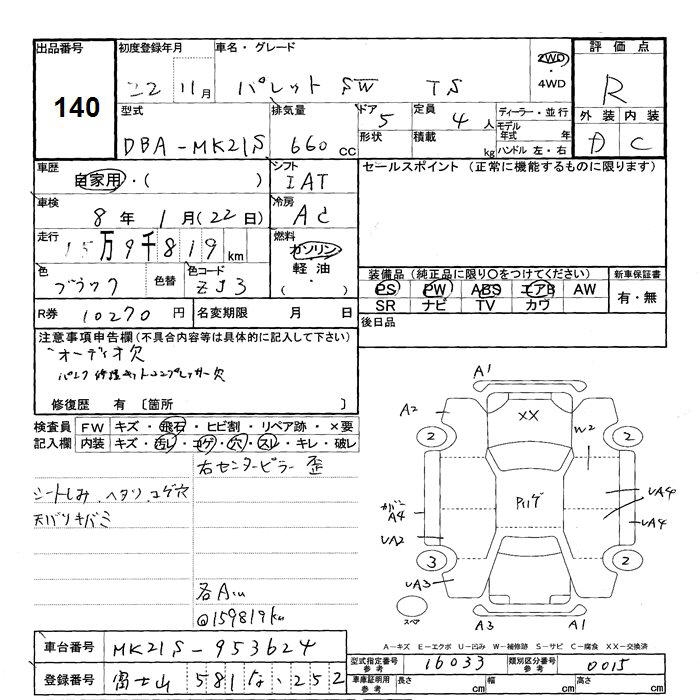 出品番号 初度登録年月 車名・グレード 評価点
140
22 11月 パレット SW TS 2WD・4WD R
型式 排気量 ドア 定員 ディーラー・並行 外装 内装
DBA-MK21S 660cc 5 4人 モデル年式 年 D C
形状 積載 kg ハンドル 左・右
車歴 シフト セールスポイント (正常に機能するものに限ります)
自家用・( ) IAT
車検 冷房
8年 1月(22日) AC
走行 燃料
15万9千819km ガソリン
軽油
・
色 色替 色コード 装備品 (純正品に限り○をつけてください) 新車保証書
ブラック ZJ3 PS PW ABS エアB AW 有・無
SR ナビ TV カワ
R券 10270円 名変期限 月 日 後日品
注意事項申告欄(不具合内容等は具体的に記入して下さい)
オーディオ欠
パンク修理キットコンプレッサー欠
修復歴 有 〔箇所 〕
検査員 FW キズ・飛石・ヒビ割・リペア跡・×要
記入欄 内装 キズ・汚レ・コゲ・穴・スレ・キレ・破レ
右センターピラー 歪
シートしみ、ヘタリ、コゲ穴
天バリキバミ
各Aω
@159819km
A1
A2
XX
2 2
W2
カバー A4
UA4
UA4
UA2
3 2
UA3
スペア
A3 A1
A-キズ E-エクボ U-凹み W-補修跡 S-サビ C-腐食 XX-交換済
車台番号 MK21S-953624
型式指定番号 参考 16033 類別区分番号 参考 0015
登録番号 富士山 581 な 252
車庫証明用 参考 長さ cm 幅 cm 高さ cm